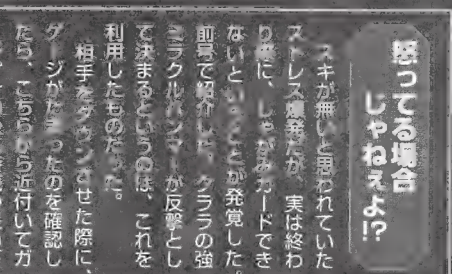 怒ってる場合
じゃねぇよ!?
スキが無いと思われていた
ストレス爆発だが、実は終わ
り際に、しゃがみガードでき
ないということが発覚した。
前号で紹介した、クララの強
ミラクルハンマーが反撃とし
て決まるというのは、これを
利用したものだった。
相手をダウンさせた際に、
ゲージがたまったのを確認し
たら、こちらから近付いてガ